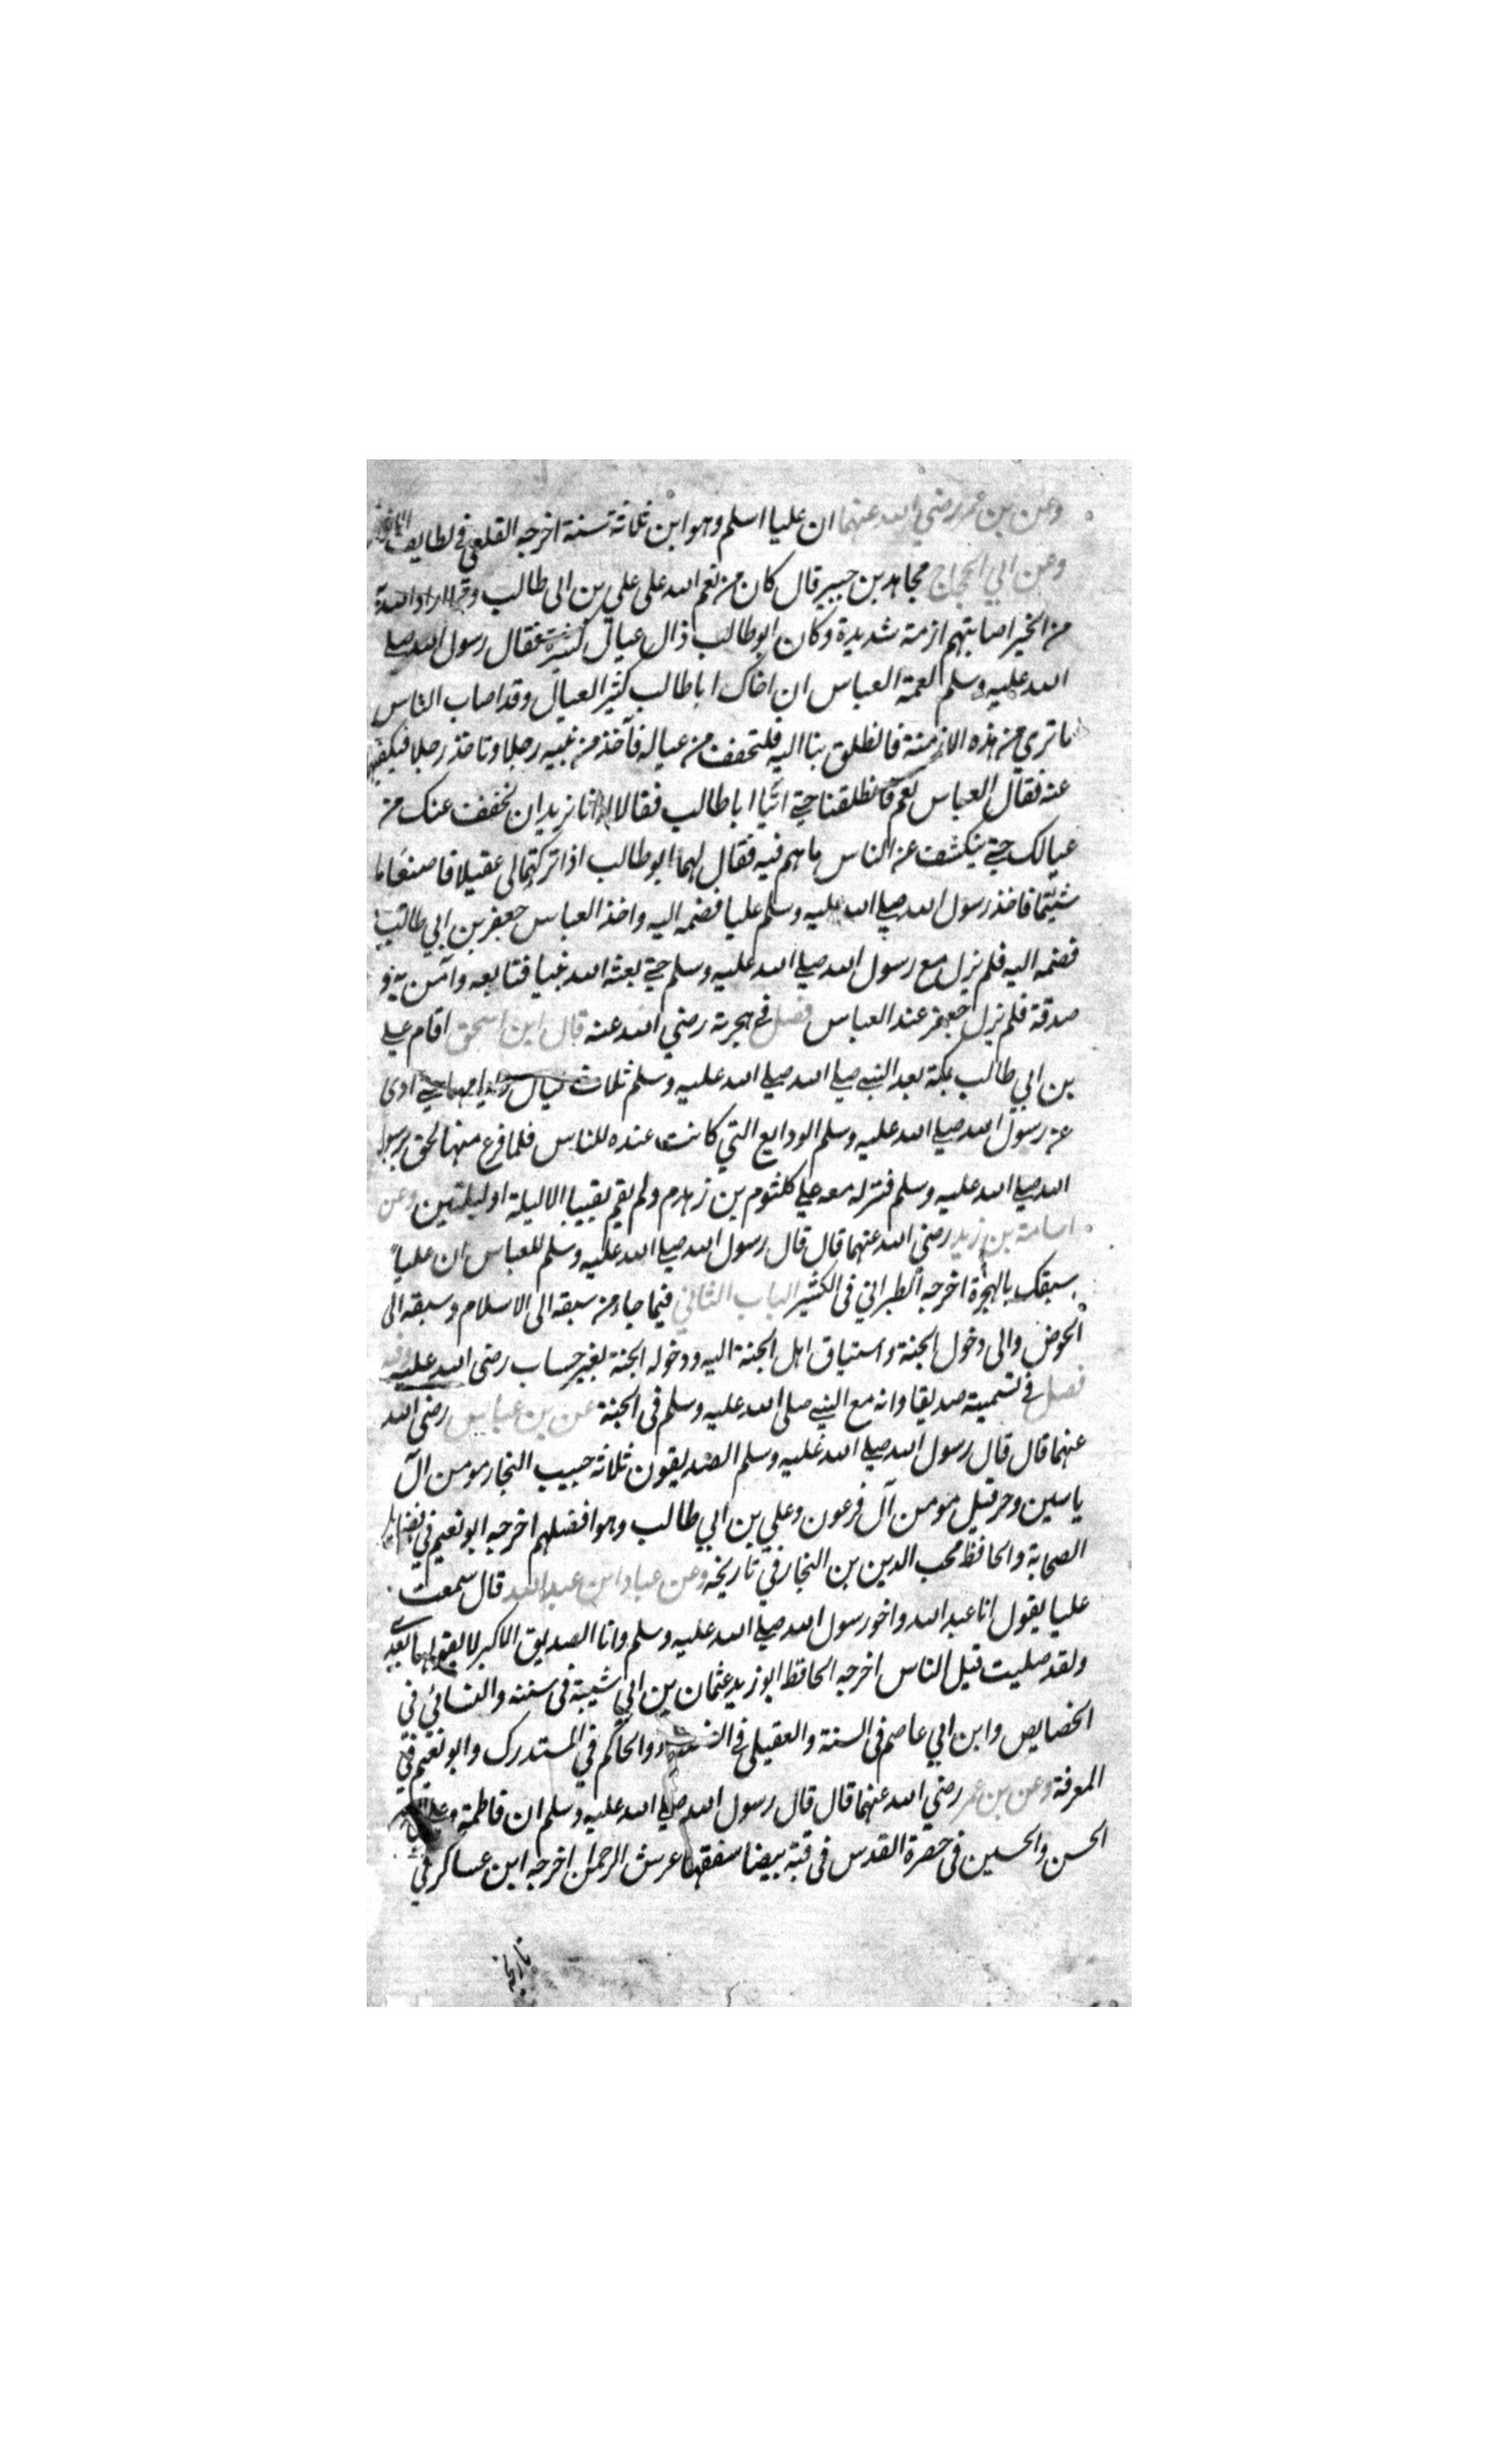 وعن بن عمر رضي الله عنهما ان عليا اسلم وهو ابن ثلاثة سنة اخرجه القلعي في لطايف
وعن ابي الحجاج مجاهد بن جبير قال كان من نعم الله على علي بن ابي طالب
من الخير اصابتهم ازمة شديدة وكان ابو طالب ذال عيال كثير فقال رسول الله صلى
الله عليه وسلم لعمه العباس ان اخاك ابا طالب كثير العيال وقد اصاب الناس
ما ترى من هذه الازمنة فانطلق بنا اليه فلتخفف من عياله فآخذ من بنيه رجلا وتاخذ رجلا فيكفيهما
عنه فقال العباس نعم فانطلقنا حتى اتيا ابا طالب فقالا انا نريد ان نخفف عنك من
عيالك حتى ينكشف عن الناس ما هم فيه فقال لهما ابو طالب اذا تركتما لي عقيلا فاصنعا ما
شيتما فاخذ رسول الله صلى الله عليه وسلم عليا فضمه اليه واخذ العباس جعفر بن ابي طالب
فضمه اليه فلم نزل مع رسول الله صلى الله عليه وسلم حتى بعثه الله نبيا فتابعه وآمن به و
صدقة فلم نزل جعفر عند العباس فصل في هجرته رضي الله عنه قال ابن اسحق اقام علي
بن ابي طالب بمكة بعد النبي صلى الله صلى الله عليه وسلم ثلاث ليال وايامها حتى ادى
عن رسول الله صلى الله عليه وسلم الودايع التي كانت عنده للناس فلما فرغ منها لحق برسول
الله صلى الله عليه وسلم فنزله معه على كلثوم بن زهدم ولم يقم بقبيا الا ليلة او ليلتين وعن
اسامة بن زيد رضي الله عنهما قال قال رسول الله صلى الله عليه وسلم للعباس ان عليا
سبقك بالهجرة اخرجه الطبراني في الكثير الباب الثاني فيما جاء من سبقه الى الاسلام وسبقه الى
الحوض والى دخول الجنة واستياق اهل الجنة اليه ودخوله الجنة بغير حساب رضي الله عليه
فصل في تسميته صديقا وانه مع النبي صلى الله عليه وسلم في الجنة عن بن عباس رضي الله
عنهما قال قال رسول الله صلى الله عليه وسلم الصديقون ثلاثة حبيب النجار مومن آل
ياسين وحرقيل مومن آل فرعون وعلي بن ابي طالب وهو افضلهم اخرجه ابو نعيم في فضايل
الصحابة والحافظ محب الدين بن النجار في تاريخه وعن عباد ابن عبد الله قال سمعت
عليا يقول انا عبد الله واخو رسول الله صلى الله عليه وسلم وانا الصديق الاكبر لا يقولها بعدي
ولقد صليت قبل الناس اخرجه الحافظ ابو زيد عثمان بن ابي شيبة في سننه والنسائي في
الخصايص وابن ابي عاصم في السنة والعقيلي في والحاكم في المستدرك وابو نعيم في
المعرفة وعن بن عمر رضي الله عنهما قال قال رسول الله صلى الله عليه وسلم ان فاطمة
الحسن والحسين في حضرة القدس في قبة بيضا سقفها عرش الرحمن اخرجه ابن عساكر في
تاريخه